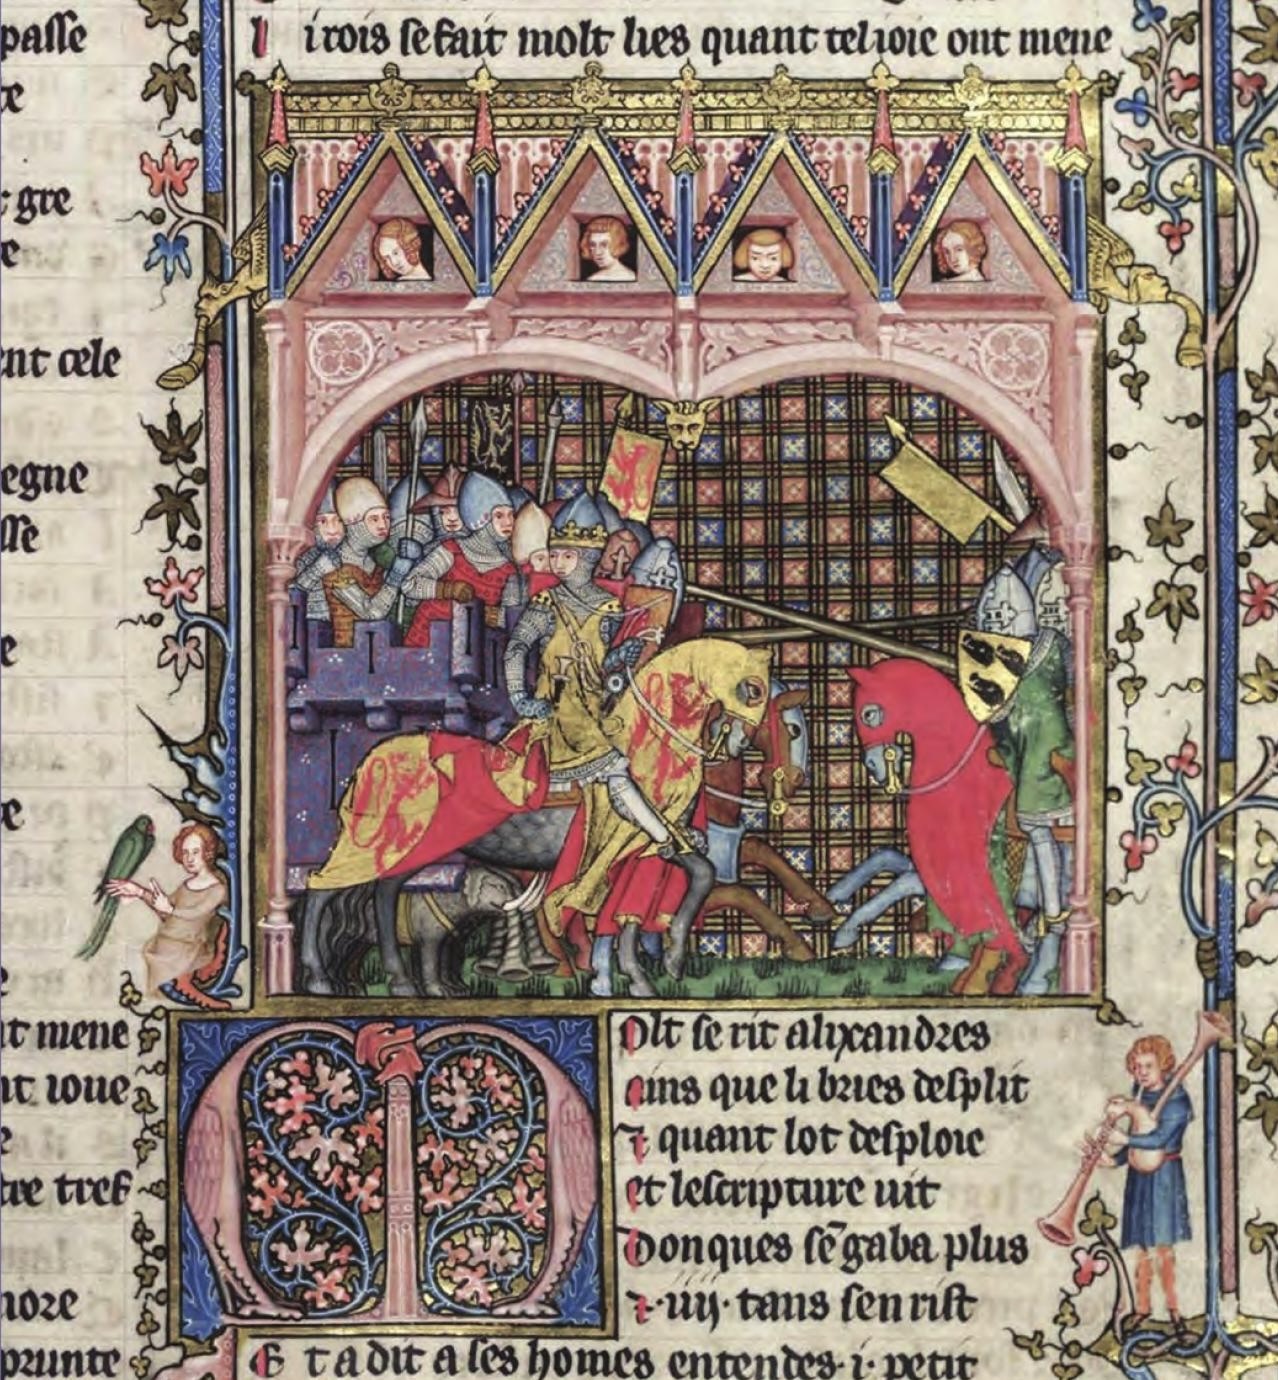 passe
gre
ent cele
egne
I irois se fait molt lies quant tel ioie ont mene
t mene
nt ioue
tre tref
prunte
Molt se rit alixandres
ains que li bries desplit
⁊ quant lot desploie
et lescripture uit
Donques sẽ gaba plus
⁊ .iiij. tans sen rist
E t a dit a ses homes entendes .i. petit